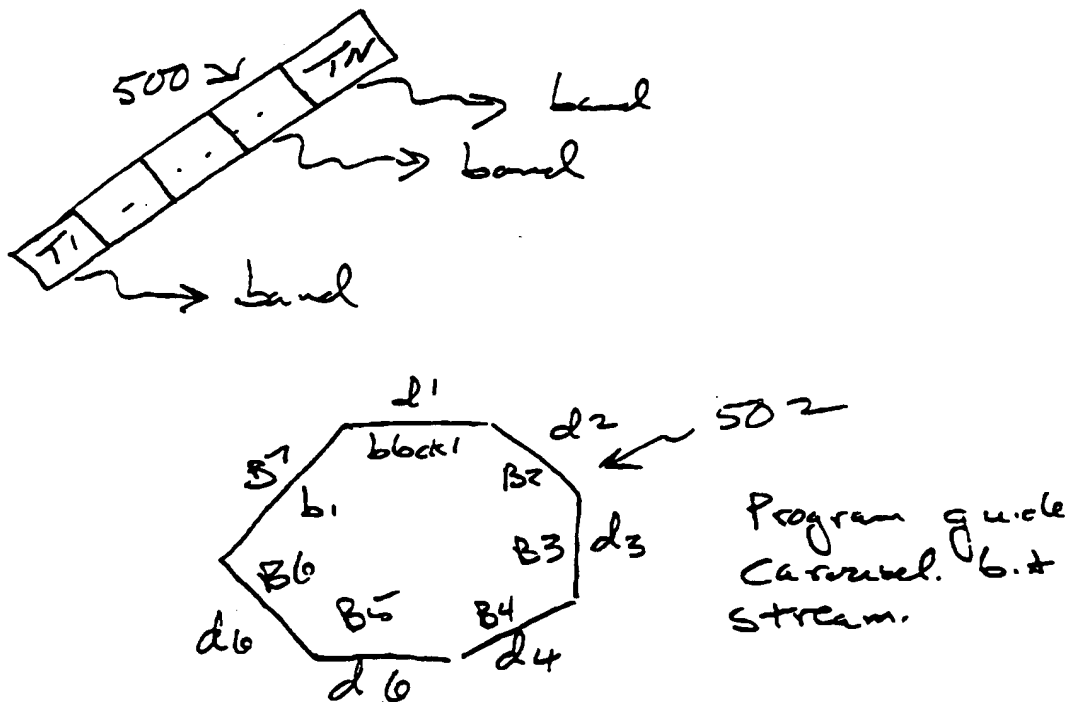 500
TN
. .
. .
-
T1
band
band
band
d1
block1
d2
502
B7
b1
B2
B3
d3
B6
B5
B4
d6
d6
d4
Program guide
Carousel. bit
stream.